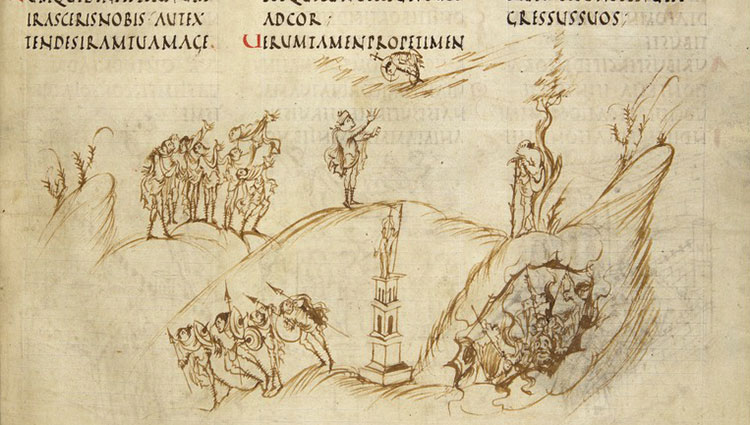 IRASCERISNOBIS AUTEX
TENDESIRAMTUAMAGE
ADCOR
UERUMTAMENPROPETIMEN
GRESSUSSUOS